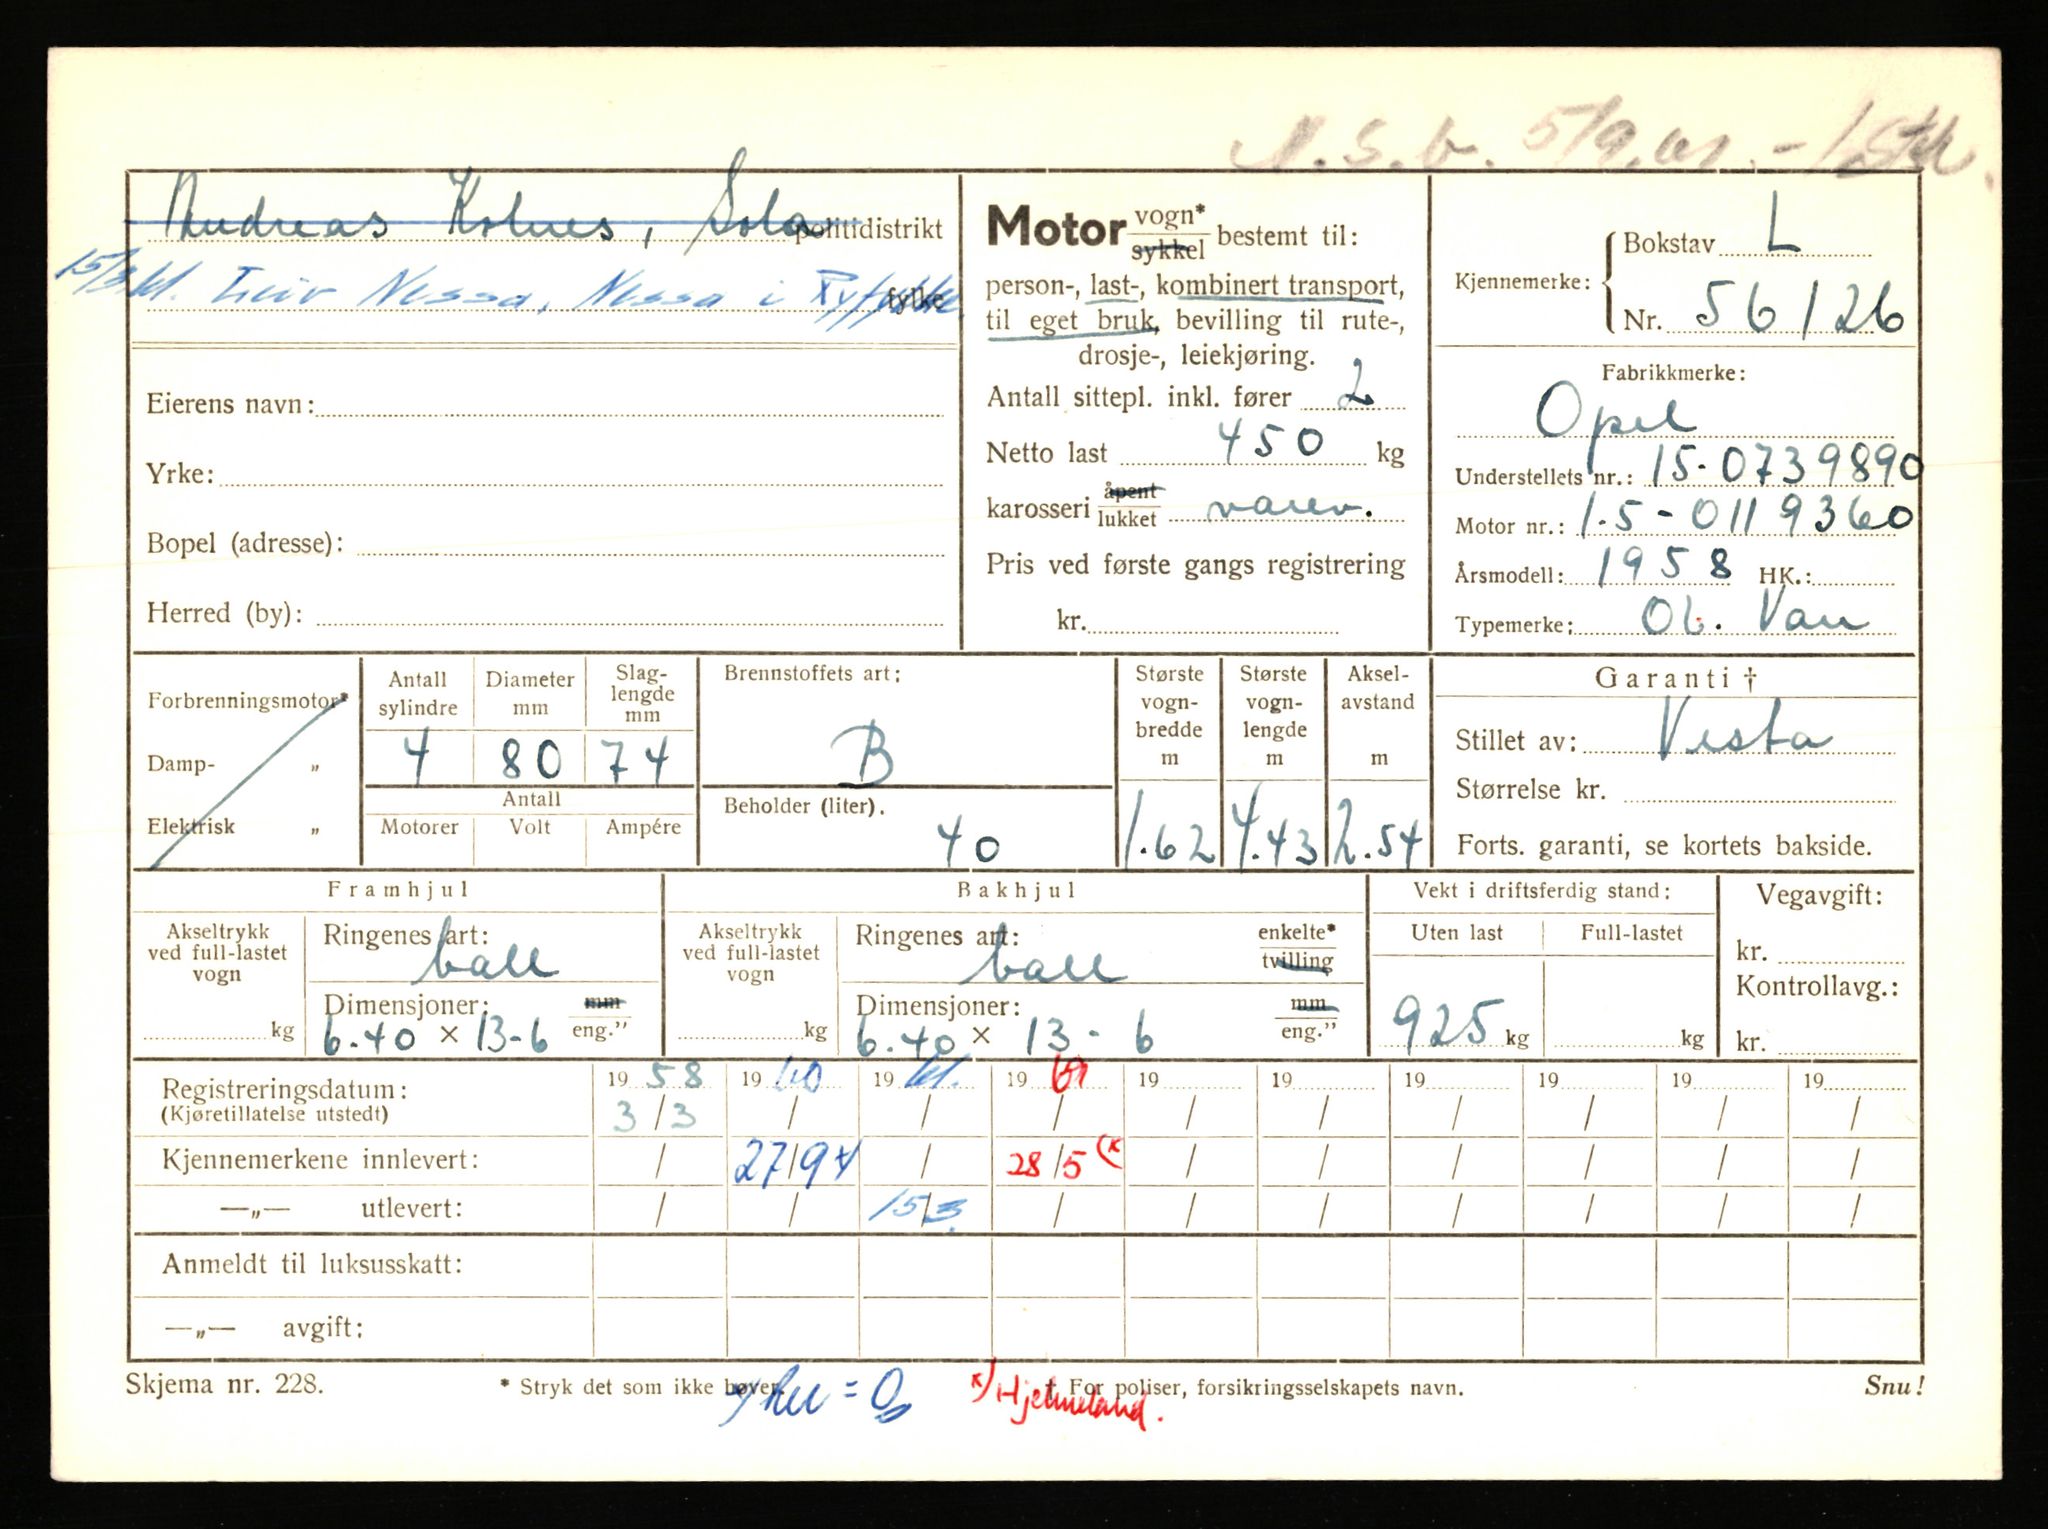 Andreas Kolnes, Sola politidistrikt
15/3 61. Leiv Nessa, Nessa i Ryfylke fylke
Eierens navn:
Yrke:
Bopel (adresse):
Herred (by):
Motor vogn* sykkel bestemt til:
person-, last-, kombinert transport,
til eget bruk, bevilling til rute-,
drosje-, leiekjøring.
Antall sittepl. inkl. fører 2
Netto last 450 kg
karosseri åpent lukket varev.
Pris ved første gangs registrering
kr.
Kjennemerke: Bokstav L
Nr. 56126
Fabrikkmerke:
Opel
Understellets nr.: 15-0739890
Motor nr.: 1.5-0119360
Årsmodell: 1958 HK.:
Typemerke: Ol. Van
Forbrenningsmotor*
Damp- „
Elektrisk „
Antall sylindre
4
Diameter mm
80
Slag-lengde mm
74
Antall
Motorer Volt Ampére
Brennstoffets art:
B
Beholder (liter).
40
Største vogn-bredde m
1.62
Største vogn-lengde m
4.43
Aksel-avstand m
2.54
Garanti †
Stillet av: Vesta
Størrelse kr.
Forts. garanti, se kortets bakside.
Framhjul
Akseltrykk ved full-lastet vogn
kg
Ringenes art:
ball
Dimensjoner: mm
6.40 × 13-6 eng."
Bakhjul
Akseltrykk ved full-lastet vogn
kg
Ringenes art: enkelte* tvilling
ball
Dimensjoner: mm
6.40 × 13-6 eng."
Vekt i driftsferdig stand:
Uten last Full-lastet
925 kg kg
Vegavgift:
kr.
Kontrollavg.:
kr.
Registreringsdatum: 1958 1960 1961. 1961 19 19 19 19 19 19
(Kjøretillatelse utstedt) 3/3 / / / / / / / / /
Kjennemerkene innlevert: / 27/9 / 28/5 (x / / / / / /
—„— utlevert: / / 15/3. / / / / / / /
Anmeldt til luksusskatt:
—„— avgift:
Skjema nr. 228.
* Stryk det som ikke høver.
† For poliser, forsikringsselskapets navn.
Snu!
= 0
x) Hjelmeland.